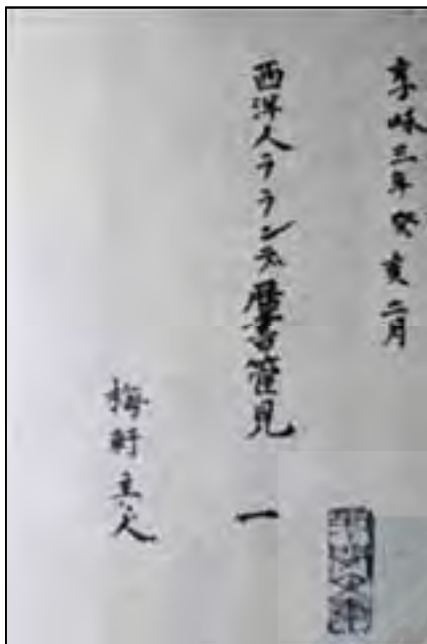 享咊三年癸亥二月
西洋人ラランデ暦書管見 一
梅軒主人